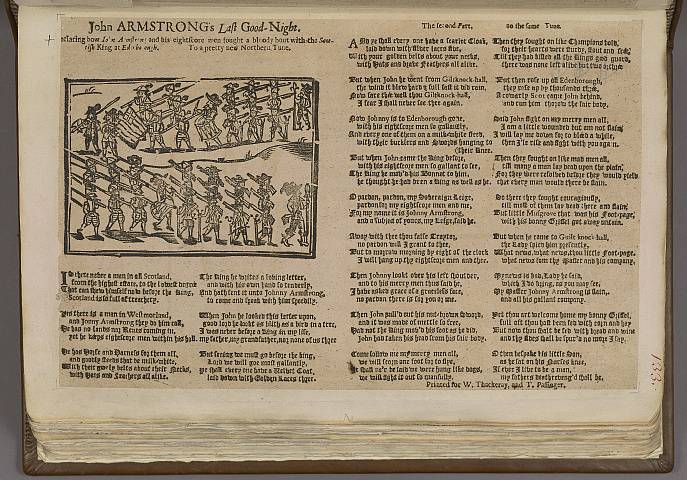 John ARMSTRONGs Last Good-Night.
Declaring how John Armstrong and his eightscore men fought a bloody bout with the Scottish
King at Edenborough. To a pretty new Northern Tune.
IS there never a man in all Scotland,
from the highest estate, to the lowest degree
That can shew himself now before the King,
Scotland is so full of treachery.
Yes there is a man in Westmorland,
and Jonny Armstrong they do him call,
He has no Lands nor Rents coming in,
yet he keeps eightscore men within his hall.
He has Horse and Harness for them all,
and goodly Steeds that be milk-white,
With their goodly belts about their Necks,
with Hats and Feathers all alike.
The King he writes a loving letter,
and with his own hand so tenderly,
And hath sent it unto Johnny Armstrong,
to come and speak with him speedily.
When John he looked this letter upon,
good lord he lookt as blith as a bird in a tree,
I was never before a King in my life,
my father, my grandfather, nor none of us three
But seeing we must go before the king,
Lord we will go most gallantly,
Ye shall every one have a Velvet Coat,
laid down with Golden Laces three.
The second Part, to the same Tune.
And ye shall every one have a Scarlet Cloak,
laid down with silver laces five,
With your golden belts about your necks,
with Hats and brave Feathers all alike.
But when John he went from Giltknock-hall,
the wind it blew hard, & full fast it did rain,
Now fare thee well thou Giltknock-hall,
I fear I shall never see thee again.
Now Johnny is to Edenborough gone,
with his eightscore men so gallantly,
And every one of them on a milk-white steed,
with their bucklers and swords hanging to
(their knee.
But when John came the King before,
with his eightscore men so gallant to see,
The King he mov'd his Bonnet to him,
he thought he had been a King as well as he.
O pardon, pardon, my Sovereign Leige,
pardon for my eightscore men and me,
For my name it is Johnny Armstrong,
and a subject of yours, my Leige, said he.
Away with thee thou false Traytor,
no pardon will I grant to thee,
But to morrow morning by eight of the clock
I will hang up thy eightscore men and thee.
Then Johnny lookt over his left shoulder,
and to his merry men thus said he,
I have asked grace of a graceless face,
no pardon there is for you or me.
Then John pull'd out his nut-brown sword,
and it was made of mettle so free,
Had not the King mov'd his foot as he did,
John had taken his head from his fair body.
Come follow me my merry men all,
we will scorn one foot for to flye,
It shall ne'r be said we were hung like dogs,
we will fight it out so manfully.
Then they fought on like Champions bold,
for their hearts were sturdy, stout and free,
Till they had killed all the Kings good guard,
there was none left alive but two or three
But then rose up all Edenborough,
they rose up by thousands three,
A cowardly Scot came John behind,
and run him thorow the fair body.
Said John fight on my merry men all,
I am a little wounded but am not slain,
I will lay me down for to bleed a while,
then I'le rise and fight with you again.
Then they fought on like mad men all,
till many a man lay dead upon the plain,
For they were resolved before they would yield
that every man would there be slain.
So there they fought couragiously,
till most of them lay dead there and slain,
But little Musgrove that was his Foot-page,
with his bonny Grissel got away untain.
But when he came to Guilt-knock-hall,
the Lady spied him presently,
What news, what news, thou little Foot-page,
what news from thy Master and his company.
My news is bad, Lady he said,
which I do bring, as you may see,
My Master Johnny Armstrong is slain,
and all his gallant company.
Yet thou art welcome home my bonny Grissel,
full oft thou hast been fed with corn and hay
But now thou shalt be fed with bread and wine
and thy sides shall be spur'd no more I say.
O then bespake his little Son,
as he sat on his Nurses knee,
If ever I live to be a man,
my fathers death reveng'd shall be.
Printed for W. Thackeray, and T. Passinger.
133